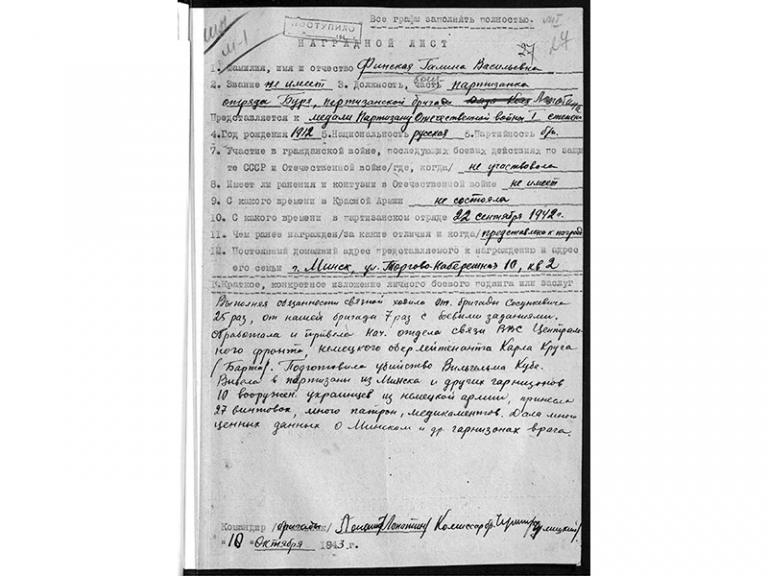 Все графы заполнять полностью.
ПОСТУПИЛО
27
27
НАГРАДНОЙ ЛИСТ
1. Фамилия, имя и отчество Финская Галина Васильевна
2. Звание не имеет 3. Должность, часть партизанка
отряда Буря, партизанской бригады
Представляется к медали Партизану Отечественной войны I степени
4. Год рождения 1912 5. Национальность русская 6. Партийность б/п.
7. Участие в гражданской войне, последующих боевых действиях по защи
те СССР и Отечественной войне/где, когда/ не участвовала
8. Имеет ли ранения и контузии в Отечественной войне не имеет
9. С какого времени в Красной Армии не состояла
10. С какого времени в партизанском отряде 22 сентября 1942 г.
11. Чем ранее награжден/за какие отличия и когда/ представлена к награде
12. Постоянный домашний адрес представляемого к награждению и адрес
его семьи г. Минск, ул. Торгово-Набережная 10, кв 2
I. Краткое, конкретное изложение личного боевого подвига или заслуг
Выполняя обязанности связной ходила от бригады Сосункевича
25 раз, от нашей бригады 7 раз с боевыми заданиями.
Обработала и привела Нач. отдела связи ВВС Централь-
ного фронта, немецкого оберлейтенанта Карла Круга
/Барта/. Подготовила убийство Вильгельма Кубе.
Вывела в партизаны из Минска и других гарнизонов
10 вооружен. украинцев из немецкой армии, принесла
27 винтовок, много патрон, медикаментов. Дала много
ценных данных о Минском и др. гарнизонах врага.
Командир /бригады/ /Лопатин/ Комиссар бр.
"10" Октября 1943 г.